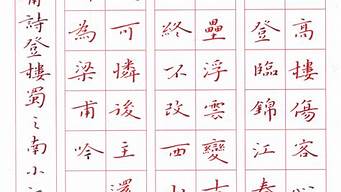 高樓傷客心
登臨錦江春
壘浮雲變古
終不改西山
可憐後主還
為梁甫吟
甫詩登樓蜀之南小江